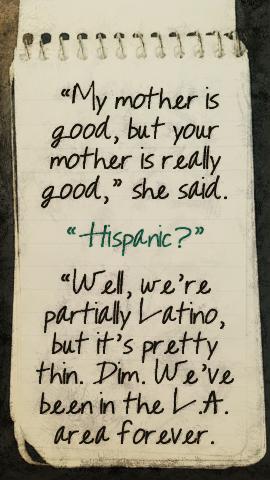 “My mother is
good, but your
mother is really
good,” she said.
“Hispanic?”
“Well, we’re
partially Latino,
but it’s pretty
thin. Dim. We’ve
been in the L.A.
area forever.